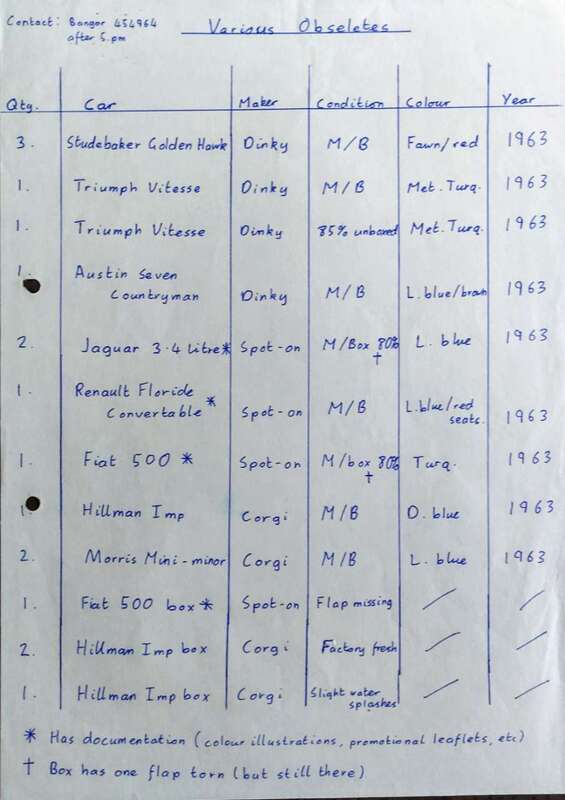 Contact: Bangor 454964
after 5.pm
Various Obseletes
Qty. Car Maker Condition Colour Year
3. Studebaker Golden Hawk Dinky M/B Fawn/red 1963
1. Triumph Vitesse Dinky M/B Met. Turq. 1963
1. Triumph Vitesse Dinky 85% unboxed Met. Turq. 1963
1. Austin Seven
Countryman Dinky M/B L. blue/brown 1963
2. Jaguar 3.4 litre* Spot-on M/Box 80% L. blue 1963
†
1. Renault Floride
Convertable * Spot-on M/B L. blue/red
seats. 1963
1. Fiat 500 * Spot-on M/box 80% Turq. 1963
†
1. Hillman Imp Corgi M/B D. blue 1963
2. Morris Mini-minor Corgi M/B L. blue 1963
1. Fiat 500 box * Spot-on Flap missing / /
2. Hillman Imp box Corgi Factory fresh / /
1. Hillman Imp box Corgi Slight water
splashes / /
* Has documentation (colour illustrations, promotional leaflets, etc)
† Box has one flap torn (but still there)